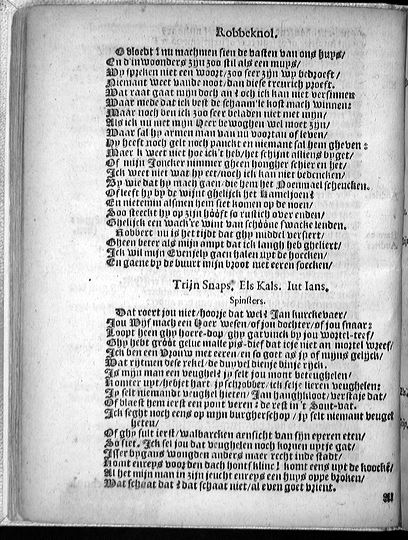 Robbeknol.
O bloedt! nu machmen sien de vasten van ons huys/
End' inwoonders zijn zoo stil als een muys/
Wy spreken niet een woort/ zoo seer zijn wy bedroeft/
Niemant weet vande noot/ dan diese treurich proeft.
Wat raat gaat mijn doch an? och ick kan niet versinnen
Waar mede dat ick best de schaam'le kost mach winnen:
Maar noch ben ick zoo seer beladen niet met mijn/
Als ick nu met mijn Heer bewoghen wel moet zijn/
Waar sal hy armen man van nu voortan of leven/
Hy heeft noch gelt noch panckt en niemant sal hem gheven:
Maer k weet niet hoe ick't heb/ het schijnt alliens byget/
Of mijn Joncker nimmer gheen hongher schier en het/
Ick weet niet wat hy eet/ noch ick kan niet bedencken/
By wie dat hy mach gaen/ die hem het Noenmael schencken.
Of leeft hy by de wijnt ghelijck het Kameljoen?
En nietemin alsmen hem siet komen op de noen/
Soo steeckt hy op zijn hóóft so rustich over enden/
Ghelijck een wack're wint van schóóne swacke lenden.
Robbert nu is het tijdt dat ghy middel versiert/
Gheen beter als mijn ampt dat ick langh heb gheliert/
Ick wil mijn Evenjely gaen halen uyt de hoecken/
En gaene by de buurt mijn broot met eeren soecken/
Trijn Snaps, Els Kals. Iut Ians.
Spinsters.
Wat roert jou niet/ hoorje dat wel? Jan hurckevaer/
Jou Wijf mach een Hoer wesen/ of jou dochter/ of jou snaar:
Loopt heen ghy hoere-dop/ ghy garvinck by jou wortel-teef/
Ghy hebt gróót geluc malle pis-dief dat icje niet an mortel wreef/
Ick ben een Vrouw met eeren/ en so goet as jy of mijns gelijck/
Wat rijtmen dese rekel/ de duyvel bienje binje rijck.
Is mijn man een veughel? jy selt jou mont beteughelen/
Komter uyt/ hebjet hart/ jy schrobber/ ick selje lieren veughelen:
Jy selt niemands veughel hieten/ Jan hanghkloot/ verstaje dat/
Of blaest hem eerst een pont veren? de rest in't Sout-vat.
Ick seght noch eens op mijn burgherschop/ jy selt niemant veugel
heten/
Of ghy sult ierst/ walbarcken aensicht van sijn eperen eten/
So siet. Ick sel jou dat veughelen noch kornen uptje gat/
Isser bygans wongden anders maer recht inde stadt/
Komt enreys voor den dach honts klinc! komt eens uyt de koocke/
Al het mijn man in zijn jeucht enreys een huys oppe broken/
Wat schaat dat? dat schaat niet/ al even goet vrient.
Al